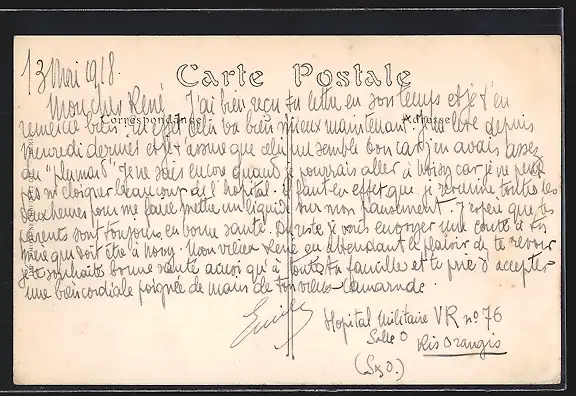 13 Mai 1918.
Carte Postale
Mon cher René J'ai bien reçu ta lettre en son temps et je t'en
Correspondance
Adresse
remercie bien. En effet cela va bien mieux maintenant. Je me lève depuis
vendredi dernier et je t'assure que cela me semble bon car j'en avais assez
du "plumard" Je ne sais encore quand je pourrais aller à Noisy car je ne peux
pas m'éloigner beaucoup de l'hôpital. Il faut en effet que je revienne toutes les
deux heures pour me faire mettre un liquide sur mon pansement. J'espère que tes
parents sont toujours en bonne santé. Du reste je vais envoyer une carte à ta
mère qui doit être à Noisy. Mon vieux René en attendant le plaisir de te revoir
je te souhaite bonne santé ainsi qu'à toute ta famille et te prie d'accepter
une bien cordiale poignée de mains de ton vieux camarade.
Hopital Militaire VR no 76
Salle O
Ris Orangis
(S. et O.)